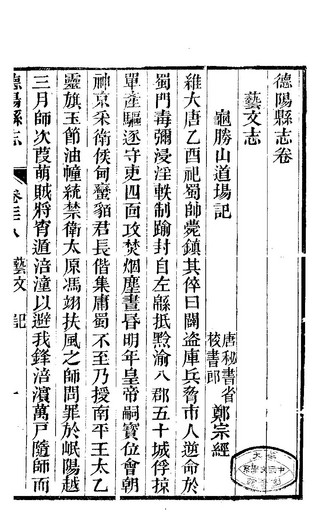 德陽縣志卷
藝文志
龜勝山道場記
唐秘書省校書郎 鄭宗經
維大唐乙酉祀蜀師薨鎮其倅曰闢盜庫兵脅市人逆命於
蜀門毒瀰浸淫軼制踰封自左緜抵黔渝八郡五十城俘掠
單產驅逐守吏四面攻焚烟塵晝昏明年皇帝嗣寶位會朝
神京釆衛侯甸蠻貊君長偕集庸蜀不至乃授南平王太乙
靈旗玉節油幢統禁衛太原馮翊扶風之師問罪於岷陽越
三月師次葭萌賊將宵遁涪潼以避我鋒涪濵萬戸隨師而
德陽縣志
卷三八
藝文
記
一